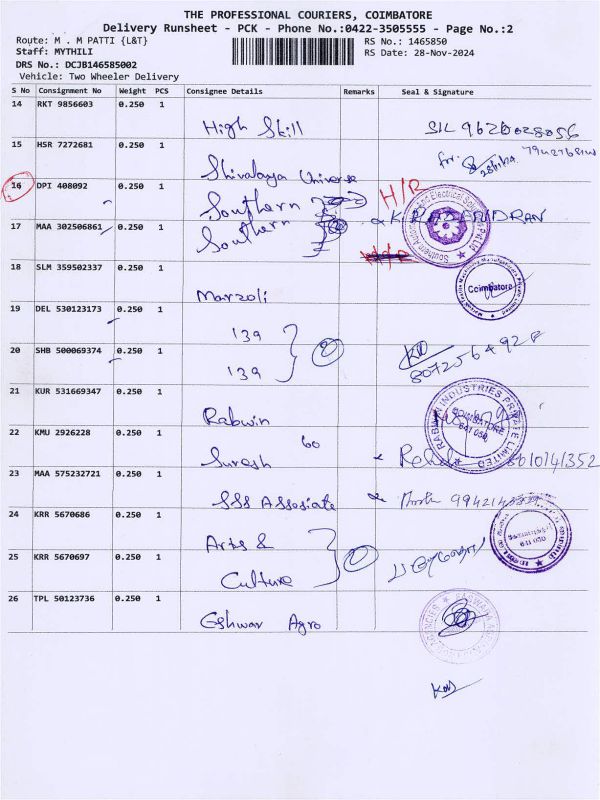 THE PROFESSIONAL COURIERS, COIMBATORE
Delivery Runsheet - PCK - Phone No.:0422-3505555 - Page No.:2
Route: M . M PATTI {L&T}
RS No.: 1465850
Staff: MYTHILI
RS Date: 28-Nov-2024
DRS No.: DCJB146585002
Vehicle: Two Wheeler Delivery
S No Consignment No Weight PCS Consignee Details Remarks Seal & Signature
14 RKT 9856603 0.250 1
High Skill
15 HSR 7272681 0.250 1
Shivalaya Universe
16 DPI 408092 0.250 1 H/R
Southern
17 MAA 302506861 0.250 1
Southern
18 SLM 359502337 0.250 1
Coimbatore
Marzoli
19 DEL 530123173 0.250 1
139
20 SHB 500069374 0.250 1 2
139
21 KUR 531669347 0.250 1
RABWIN INDUSTRIES PRIVATE LIMITED
COIMBATORE
Rabwin
22 KMU 2926228 0.250 1 60
Suresh
23 MAA 575232721 0.250 1
SSS Assosiate
24 KRR 5670686 0.250 1
Arts &
25 KRR 5670697 0.250 1 2
Culture
26 TPL 50123736 0.250 1
Eshwar Agro